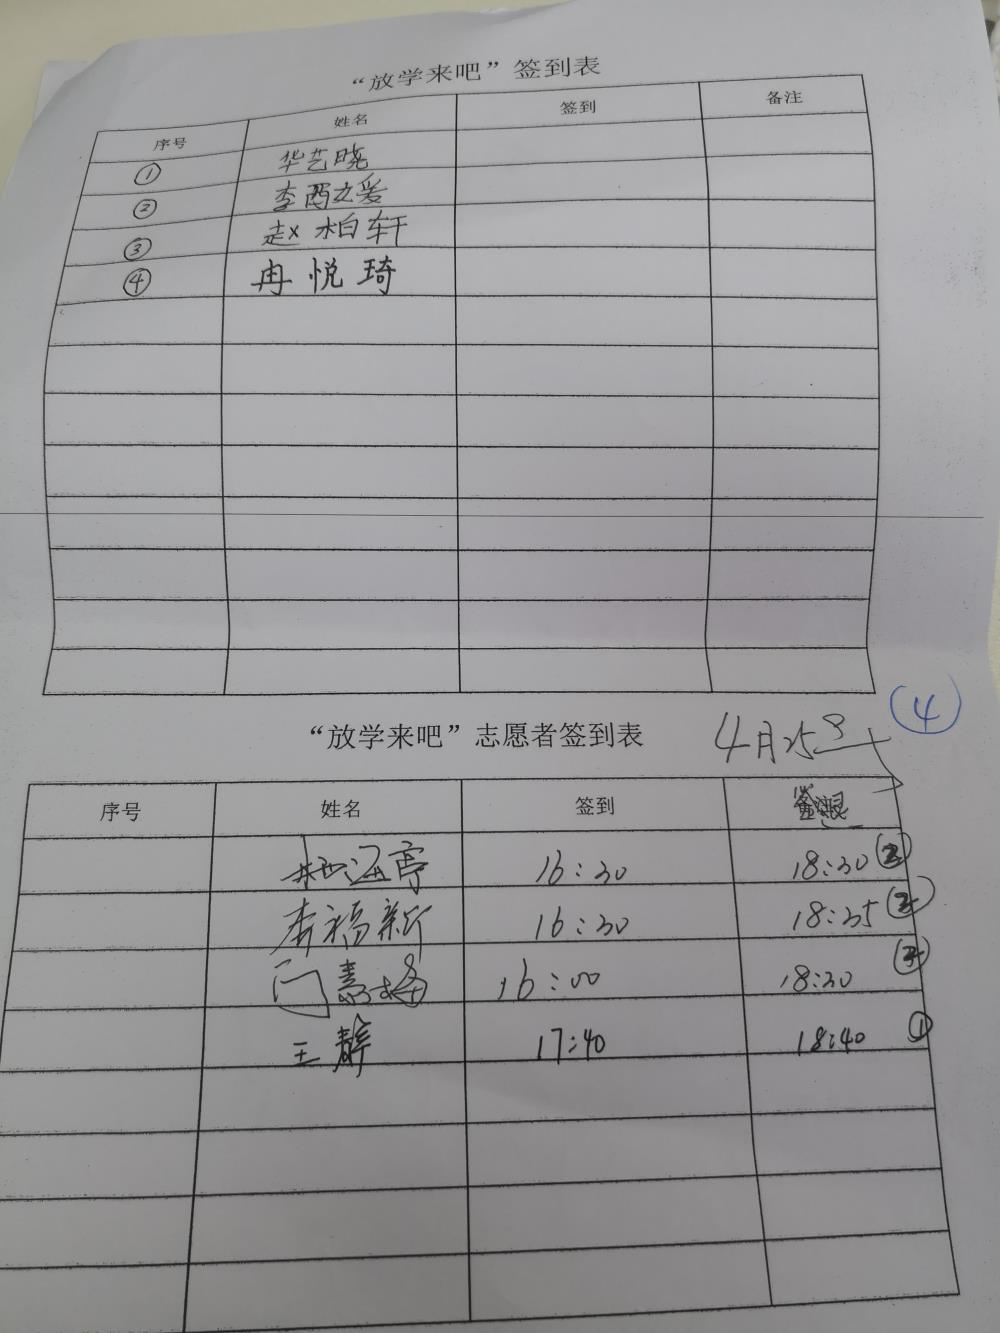 “放学来吧”签到表
序号 姓名 签到 备注
① 华艺晓
② 李酉之爱
③ 赵柏轩
④ 冉悦琦
“放学来吧”志愿者签到表 4月25号 ④
序号 姓名 签到 签退
16:30 18:30 ②
李福新 16:30 18:35 ②
16:00 18:30
王静 17:40 18:40 ①